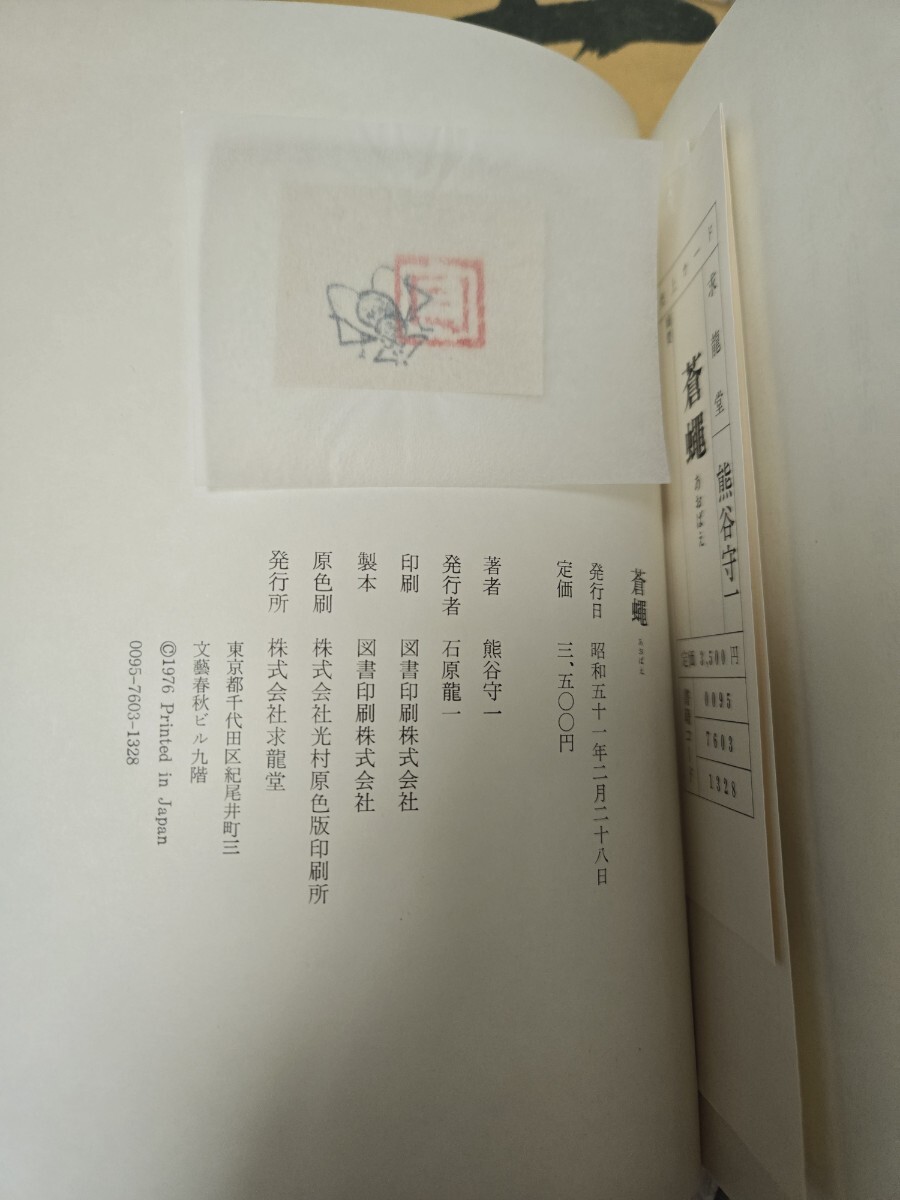 求龍堂
熊谷守一
蒼蠅
あおばえ
定価 3,500円
0095
7603
1328
蒼蠅 あおばえ
発行日 昭和五十一年二月二十八日
定価 三、五〇〇円
著者 熊谷守一
発行者 石原龍一
印刷 図書印刷株式会社
製本 図書印刷株式会社
原色刷 株式会社光村原色版印刷所
発行所 株式会社求龍堂
東京都千代田区紀尾井町三
文藝春秋ビル九階
©1976 Printed in Japan
0095-7603-1328